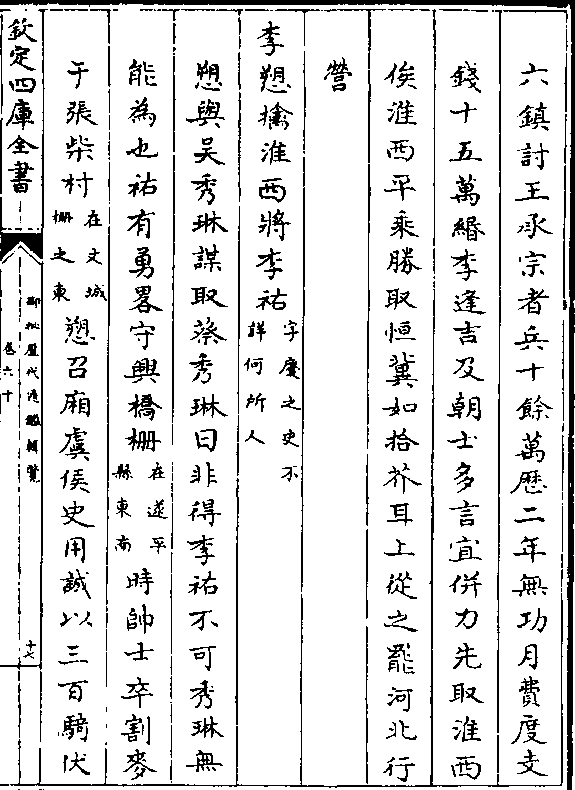 六鎮討王承宗者兵十餘萬歷二年無功月費度支
錢十五萬緡李逢吉及朝士多言宜併力先取淮西
俟淮西平乘勝取恒冀如拾芥耳上從之罷河北行
營
李愬擒淮西將李祐字慶之史不詳何所人
愬與吳秀琳謀取蔡秀琳曰非得李祐不可秀琳無
能為也祐有勇畧守興橋柵在遂平縣東南時帥士卒割麥
于張柴村在文城柵之東愬召廂虞侯史用誠以三百騎伏
欽定四庫全書
御批歷代通鑑輯覽
卷六十
十七